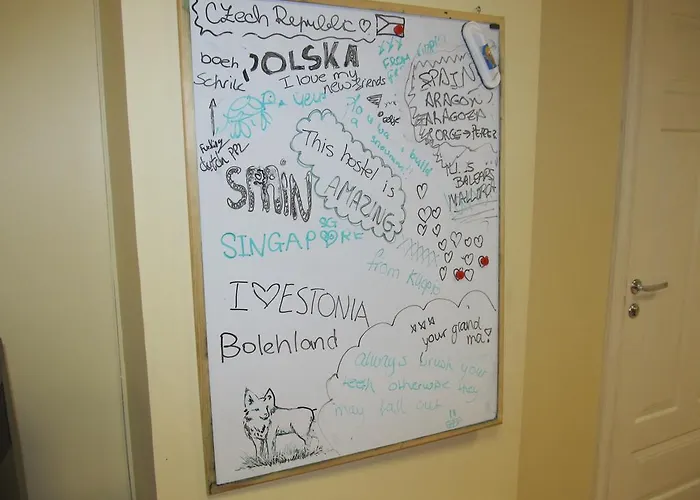 Czech Republic
POLSKA
I love my
new friends
boeh,
Schrik
dutch PPL
Do u wa
a build
snowman!!
SPAIN
ARAGON,
ZARAGOZA
JORGE PÉREZ
BALEARS
MALLORCA
This hostel is
AMAZING
SPAIN
SG
SINGAPORE
from Kuopio
I ♡ ESTONIA
Bolehland
your grand
ma!
always brush your
teeth otherwise they
may fall out